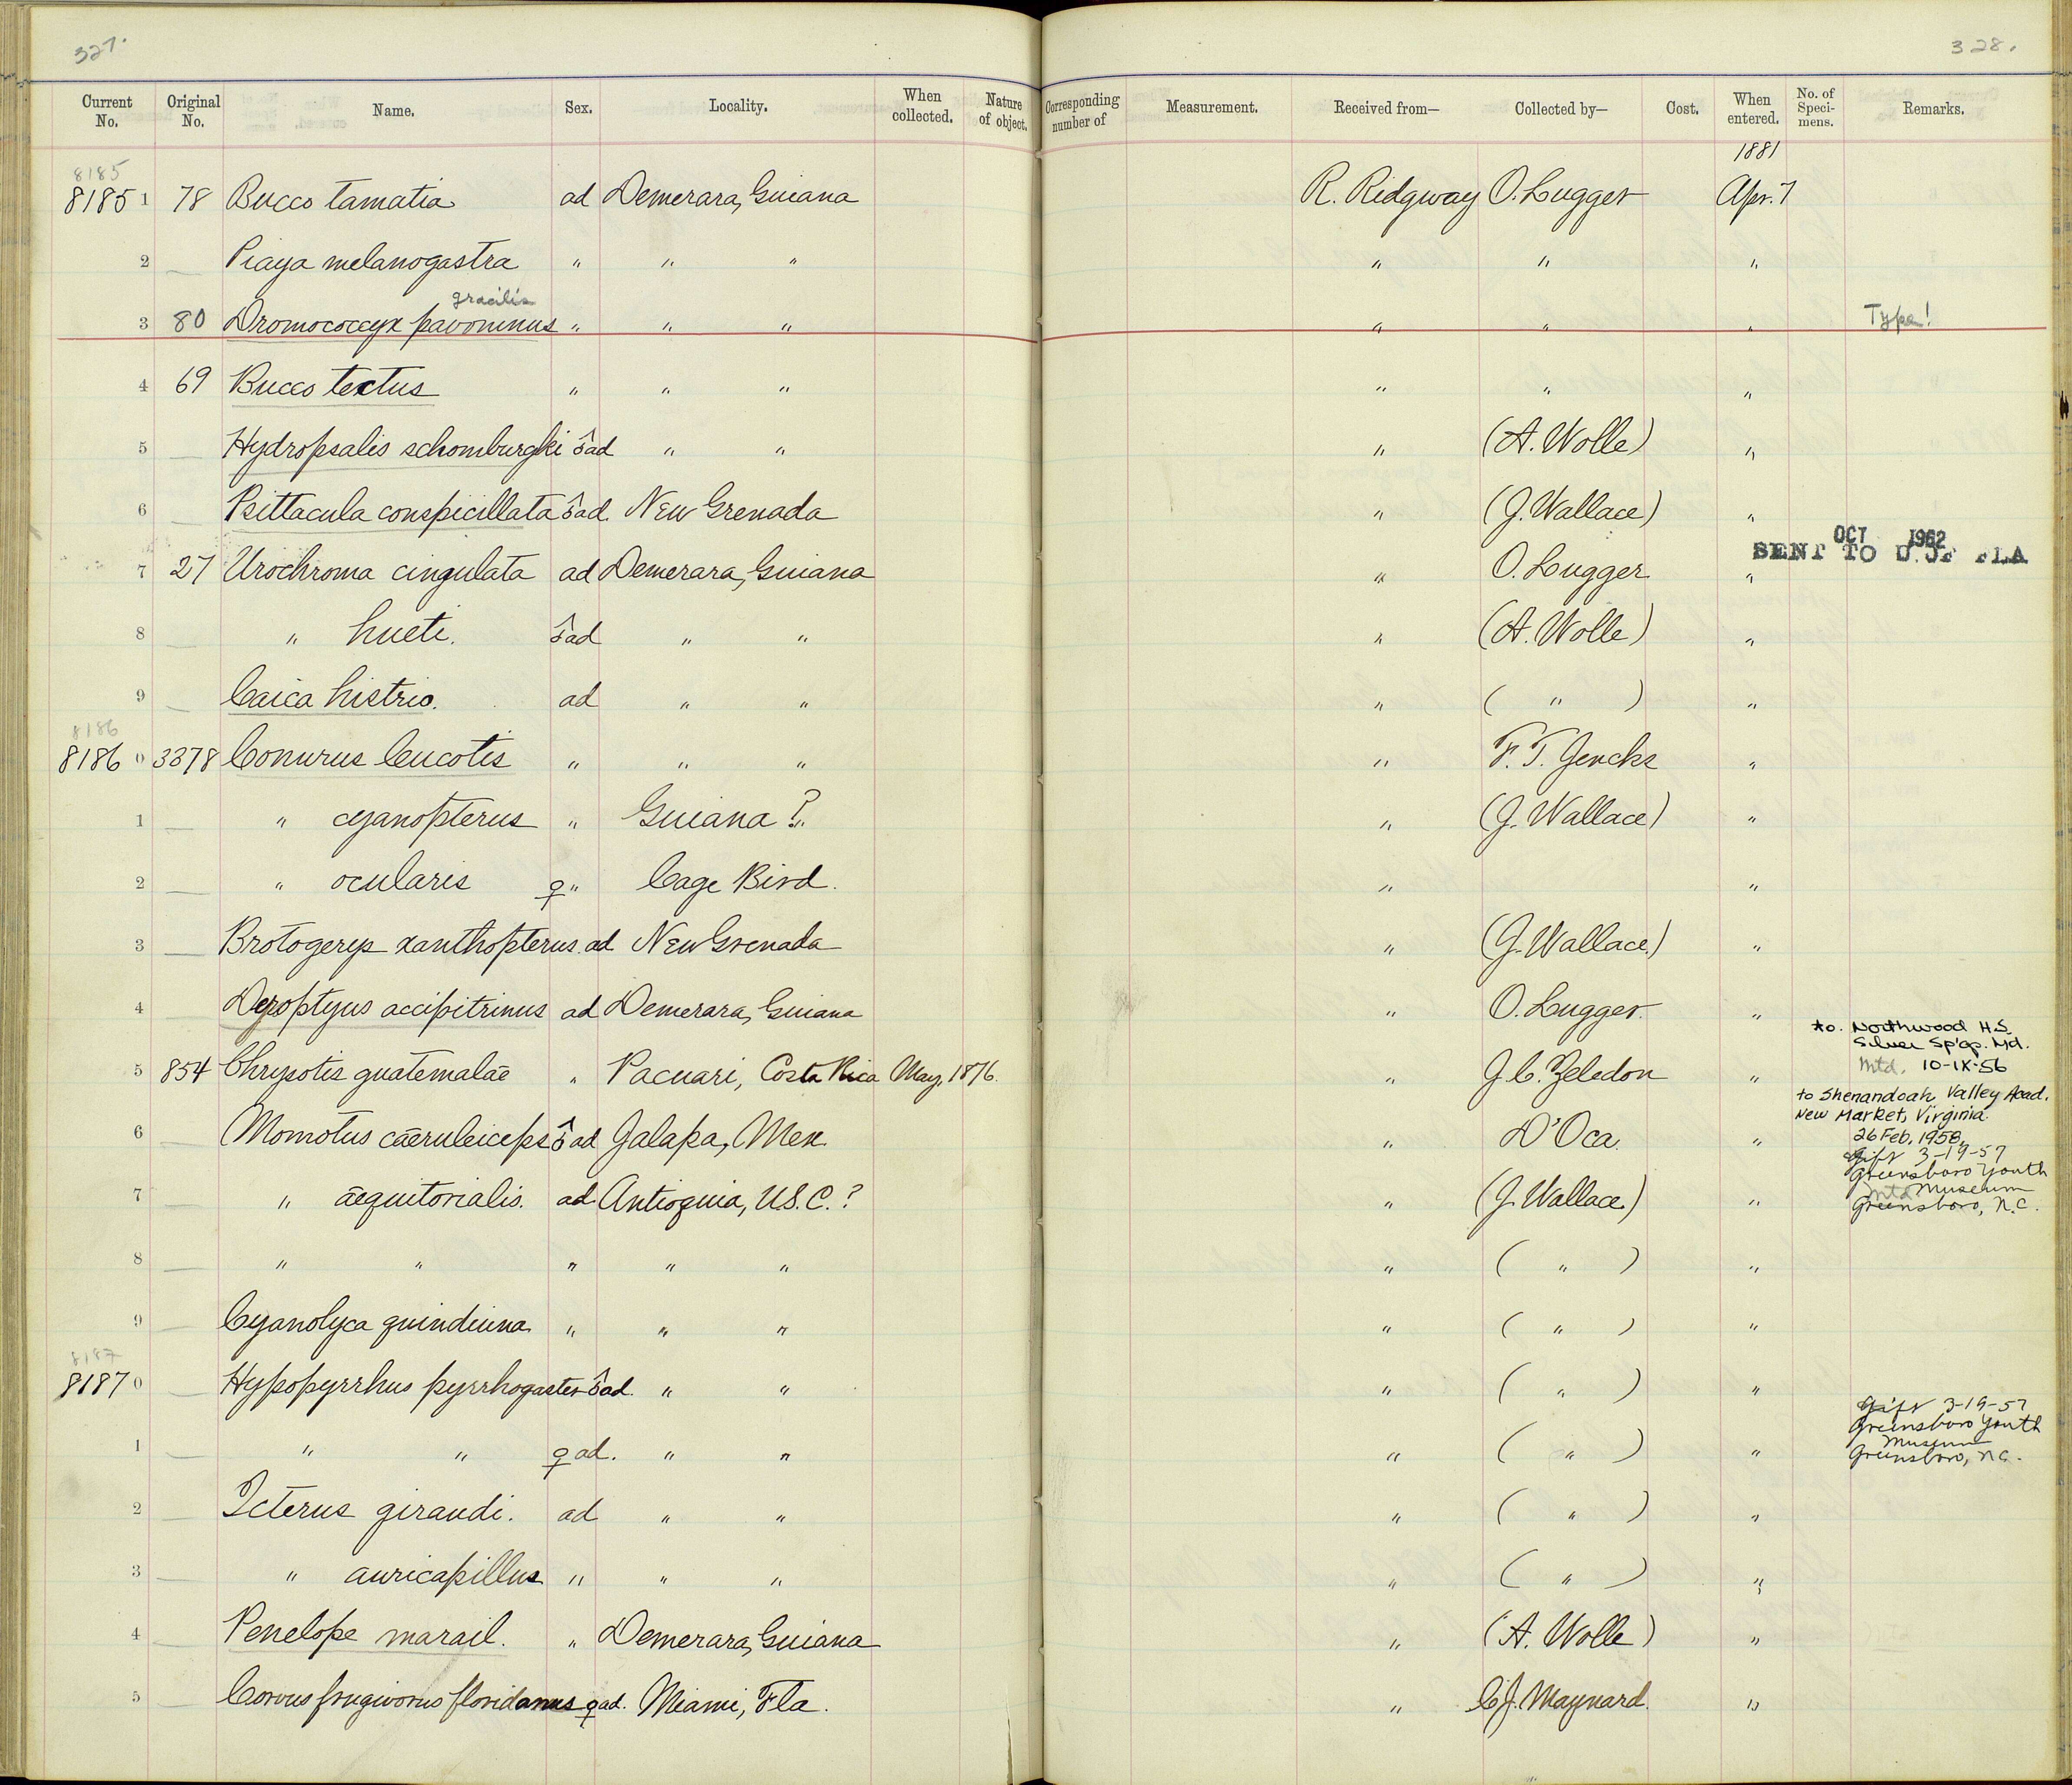 327.
328.
Current No. Original No. Name. Sex. Locality. When collected. Nature of object. Corresponding number of Measurement. Received from— Collected by— Cost. When entered. No. of Speci-mens. Remarks.
1881
8185
8185 1 78 Bucco tamatia ad Demerara, Guiana R. Ridgway O. Lugger Apr. 7
2 — Piaya melanogastra " " " " " "
gracilis
3 80 Dromococcyx pavoninus " " " " " " Type!
4 69 Bucco tectus " " " " " "
5 — Hydropsalis schomburgki ♂ ad " " " (A. Wolle) "
6 — Psittacula conspicillata ♂ ad. New Grenada " (J. Wallace) "
OCT 1962
SENT TO U. OF FLA
7 27 Urochroma cingulata ad Demerara, Guiana " O. Lugger "
8 — " hueti. ♂ ad " " " (A. Wolle) "
9 — Caica histrio. ad " " " ( " ) "
8186
8186 0 3378 Conurus leucotis " " " " F. T. Jencks "
1 — " cyanopterus " Guiana? " (J. Wallace) "
2 — " ocularis ♀ " Cage Bird. " "
3 — Brotogerys xanthopterus. ad New Grenada " (J. Wallace.) "
4 — Deroptyus accipitrinus ad Demerara, Guiana " O. Lugger. "
to. Northwood H.S.
Silver Sp'gs. Md.
5 854 Chrysotis guatemalae " Pacuari, Costa Rica May, 1876. " J. C. Zeledon " Mtd. 10-IX-56
to Shenandoah Valley Acad.
New Market, Virginia
6 Momotus cæruleiceps ♂ ad Jalapa, Mex. " D'Oca. " 26 Feb. 1958.
Gift 3-19-57
Greensboro Youth
mtd Museum
7 — " æquitorialis. ad Antioquia, U.S.C.? " (J. Wallace.) " Greensboro, N.C.
8 — " " " " " " ( " ) "
9 — Cyanolyca quindiuna " " " " ( " ) "
8187
8187 0 — Hypopyrrhus pyrrhogaster ♂ ad. " " " ( " ) "
Gift 3-19-57
Greensboro Youth
Museum
1 — " " ♀ ad. " " " ( " ) " Greensboro, N.C.
2 — Icterus giraudi. ad " " " ( " ) "
3 — " auricapillus " " " " ( " ) "
4 — Penelope marail. " Demerara, Guiana " (A. Wolle) "
5 — Corvus frugivorus floridanus ♀ ad. Miami, Fla. " C. J. Maynard. "